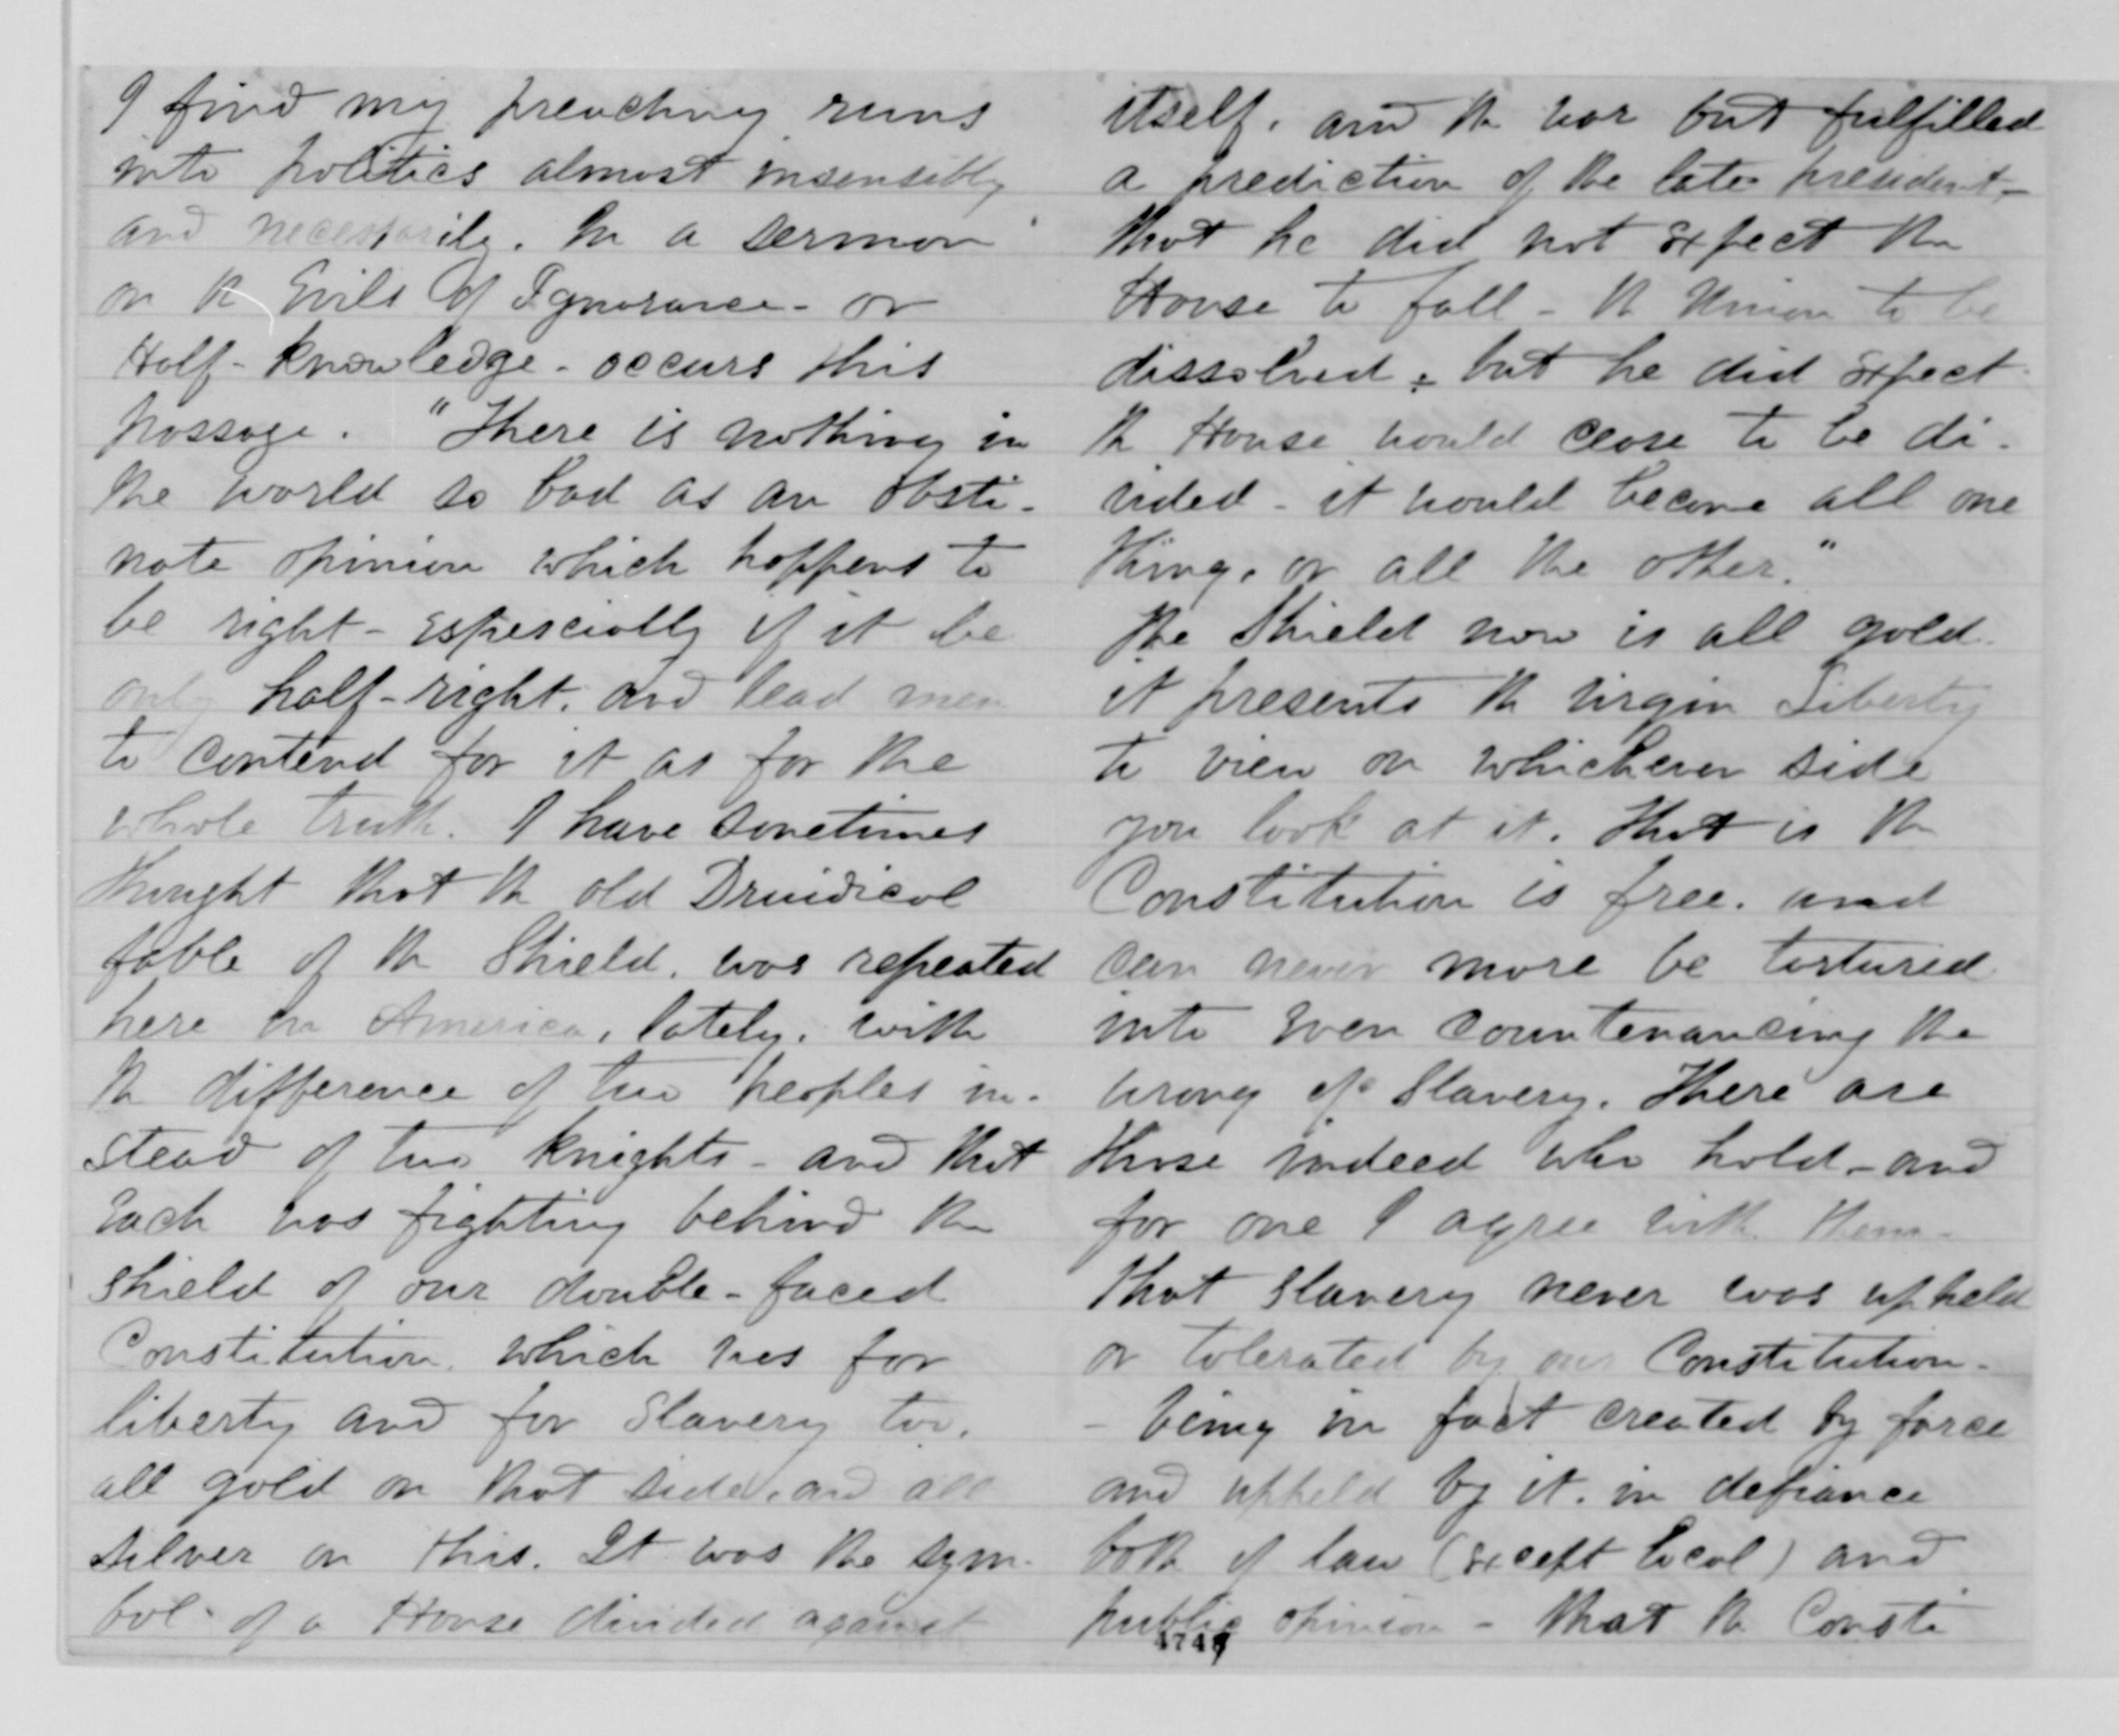 I find my preaching runs
into politics almost insensibly
and necessarily. In a sermon
on the Evils of Ignorance - or
Half-knowledge - occurs this
passage. "There is nothing in
the world so bad as an obsti-
nate opinion which happens to
be right - especially if it be
only half-right, and lead men
to contend for it as for the
whole truth. I have sometimes
thought that the old Druidical
fable of the Shield, was repeated
here in America, lately, with
the difference of two peoples in-
stead of two knights - and that
each was fighting behind the
shield of our double-faced
Constitution, which was for
liberty and for Slavery too,
all gold on that side, and all
silver on this. It was the sym-
bol of a House divided against
itself, and the war but fulfilled
a prediction of the late president -
that he did not expect the
House to fall - the Union to be
dissolved; but he did expect
the House would cease to be di-
vided - it would become all one
thing, or all the other."
The Shield now is all gold
it presents the virgin Liberty
to view on whichever side
you look at it. That is the
Constitution is free. and
can never more be tortured
into even countenancing the
wrong of Slavery. There are
those indeed who hold - and
for one I agree with them -
that slavery never was upheld
or tolerated by our Constitution -
- being in fact created by force
and upheld by it, in defiance
both of law (except local) and
public opinion - that the Consti